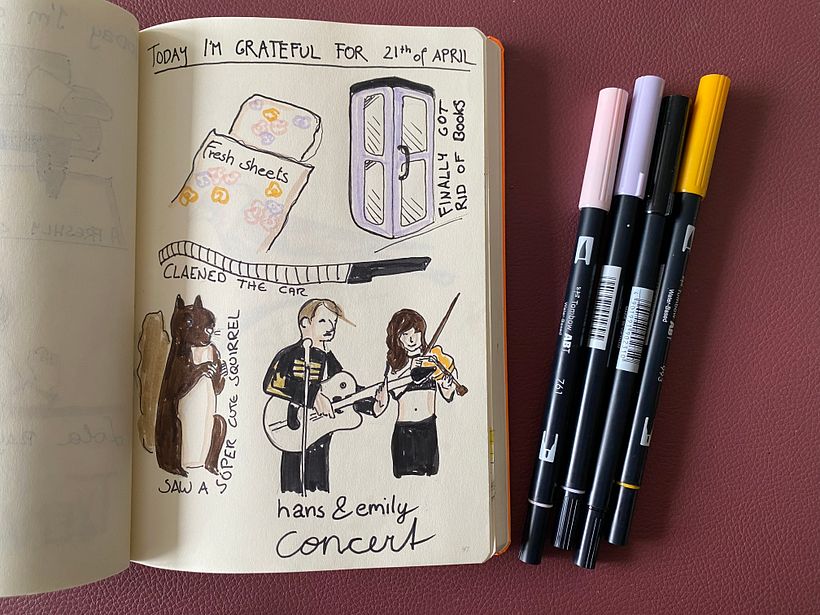 TODAY I'M GRATEFUL FOR 21th of APRIL
Fresh sheets
FINALLY GOT
RID OF BOOKS
CLAENED THE CAR
SAW A SUPER CUTE SQUIRREL
hans & emily
concert
Tombow ABT
Water-Based
761
993